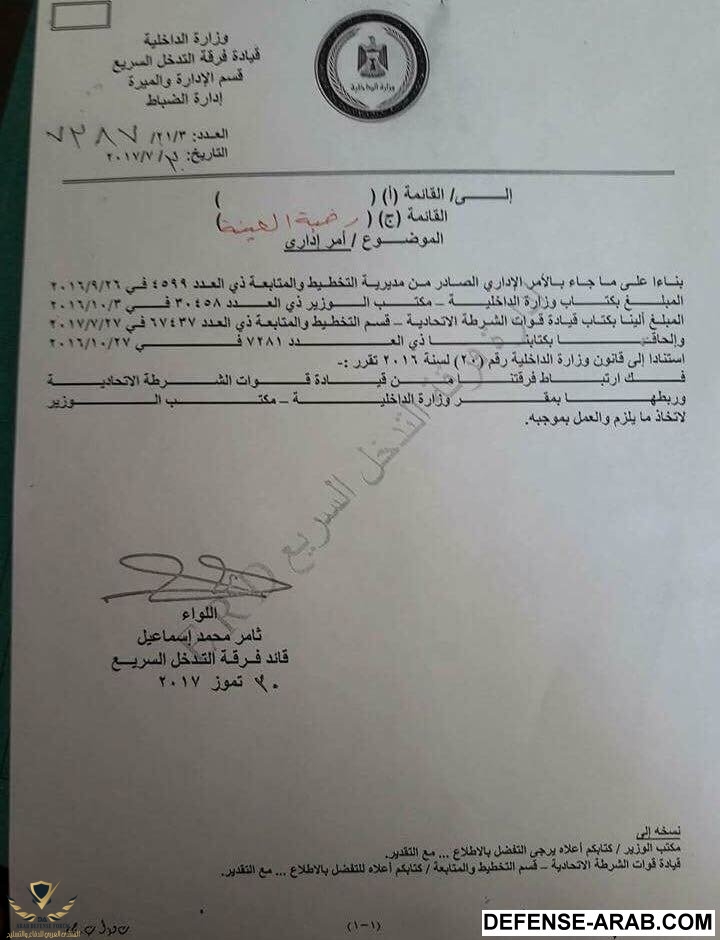 وزارة الداخلية
قيادة فرقة التدخل السريع
قسم الإدارة والميرة
إدارة الضباط
وزارة الداخلية
العدد: ٢١/٣/ ٧٣٨٧
التاريخ: ٣٠/٧/٢٠١٧
إلـــى/ القائمة (أ) ( )
القائمة (ج) ( )
الموضوع/ أمر إداري
بناءا على ما جاء بالأمر الإداري الصادر من مديرية التخطيط والمتابعة ذي العدد ٤٥٩٩ في ٢٠١٦/٩/٢٦
المبلغ بكتاب وزارة الداخلية – مكتب الوزير ذي العدد ٣٠٤٥٨ في ٢٠١٦/١٠/٣
المبلغ ألينا بكتاب قيادة قوات الشرطة الاتحادية – قسم التخطيط والمتابعة ذي العدد ٦٧٤٣٧ في ٢٠١٧/٧/٢٧
وإلحاقا بكتابنا ذي العدد ٧٢٨١ في ٢٠١٦/١٠/٢٧
استنادا إلى قانون وزارة الداخلية رقم (٢٠) لسنة ٢٠١٦ تقرر :-
فك ارتباط فرقتنا من قيادة قوات الشرطة الاتحادية
وربطها بمقر وزارة الداخلية – مكتب الوزير
لاتخاذ ما يلزم والعمل بموجبه.
فرقة التدخل السريع ERD
اللواء
ثامر محمد إسماعيل
قائد فرقة التدخل السريع
٣٠ تموز ٢٠١٧
نسخه إلى
مكتب الوزير / كتابكم أعلاه يرجى التفضل بالاطلاع ... مع التقدير.
قيادة قوات الشرطة الاتحادية – قسم التخطيط والمتابعة / كتابكم أعلاه للتفضل بالاطلاع ... مع التقدير.
(١-١)
المنتدى العربي للدفاع والتسليح
DEFENSE-ARAB.COM